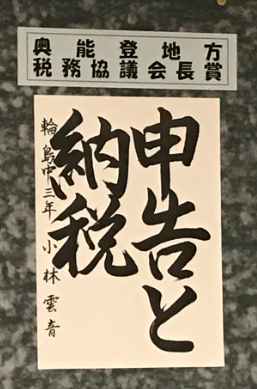 奥能登地方
税務協議会長賞
申告と
納税
輪島中三年 小林雲音